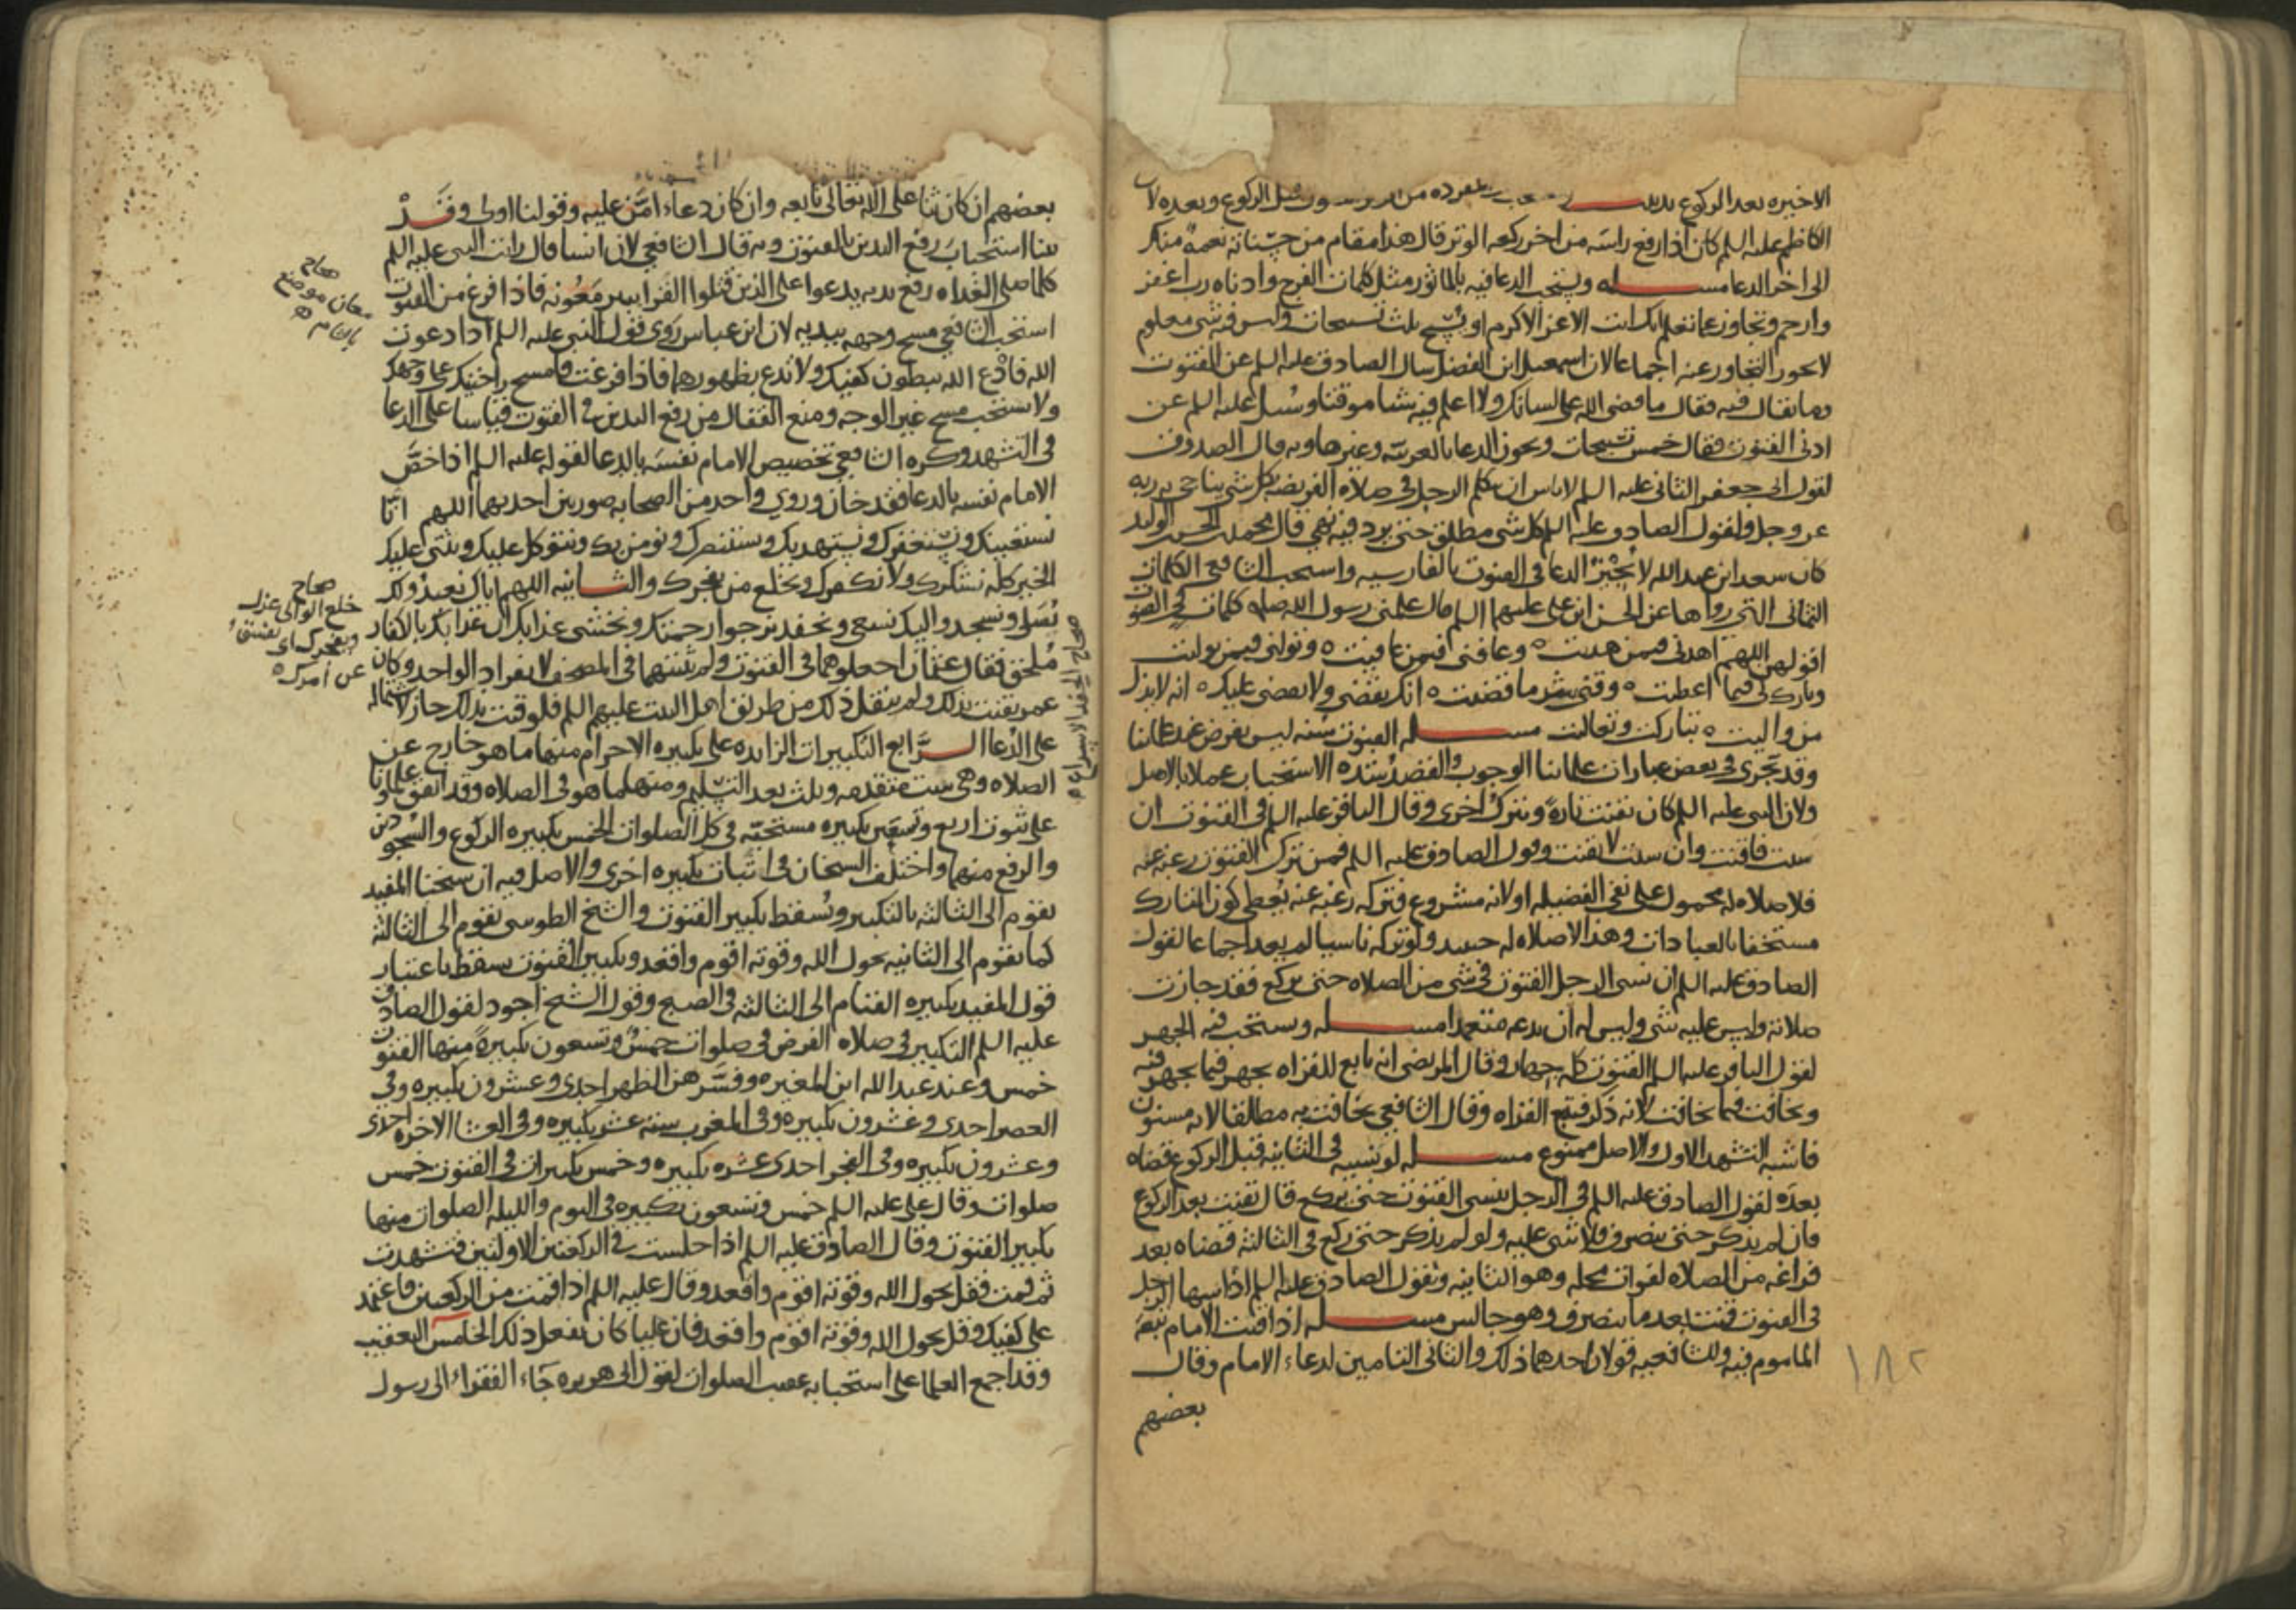 الاخيره بعد الركوع قبل الركوع وبعده لان
الكاظم عليه السلم كان اذا رفع راسه من اخر ركعه الوتر قال هذا مقام من حسناته نعمة منك
الى اخر الدعا مسـله ويستحب الدعا فيه بالماثور مثل كلمات الفرج وادناه رب اغفر
وارحم وتجاوز عما تعلم انك انت الاعز الاكرم او يسبح ثلث تسبيحات وليس فيه شى معلوم
لا يجوز التجاوز عنه اجماعا لان اسمعيل ابن الفضل سال الصادق عليه السلم عن القنوت
وما يقال فيه فقال ما قضى الله على لسانك ولا اعلم فيه شيا موقتا وسئل عليه السلم عن
ادنى القنوت فقال خمس تسبيحات ويجوز الدعا بالعربيه وغيرها وبه قال الصدوق
لقول ابى جعفر الثانى عليه السلم لاباس ان يتكلم الرجل فى صلاه الفريضه بكل شى يناجى به ربه
عز وجل ولقول الصادق عليه السلم كل شى مطلق حتى يرد فيه نهى قال محمد بن الحسن بن الوليد
كان سعد ابن عبد الله لا يُجيْزُ الدعا فى القنوت بالفارسيه واستحب الشافعى الكلمات
الثمانى التى رواها عن الحسن ابن على عليهما السلم قال علمنى رسول الله صله كلمات فى القنوت
اقولهن اللهم اهدنى فيمن هديت ه وعافنى فيمن عافيت ه وتولنى فيمن توليت
وبارك لى فيما اعطيت ه وقنى شر ما قضيت ه انك تقضى ولا يقضى عليك ه انه لا يذل
من واليت ه تباركت وتعاليت مسـله القنوت سنه ليس بفرض عند علمائنا
وقد يجرى فى بعض عبارات علمائنا الوجوب والقصد شده الاستحباب عملا بالاصل
ولان النبى عليه السلم كان يقنت تارةً ويترك اخرى وقال الباقر عليه السلم فى القنوت ان
شئت فاقنت وان شئت لا تقنت وقول الصادق عليه السلم فمن ترك القنوت رغبه عنه
فلا صلاه له محمول على نفى الفضيله او لانه مشروع فتركه رغبه عنه يعطى كون التارك
مستخفا بالعبادات وهذا لا صلاه له حينيد ولو تركه ناسيا لم يعد اجماعا لقول
الصادق عليه السلم ان نسى الرجل القنوت فى شى من الصلاه حتى يركع فقد جازت
صلاته وليس عليه شى وليس له ان يدعه متعمدا مسـله ويستحب فيه الجهر
لقول الباقر عليه السلم القنوت كله جهار وقال المرتضى انه تابع للقراه يجهر فيما يجهر فيه
ويخافت فيما يخافت لانه ذكر فيتبع القراه وقال الشافعى يخافت به مطلقا لانه مسنون
فاشبه التشهد الاول والاصل ممنوع مسـله لو نسيه فى الثانيه قبل الركوع قضاه
بعده لقول الصادق عليه السلم فى الرجل ينسى القنوت حتى يركع قال يقنت بعد الركوع
فان لم يذكر حتى ينصرف فلا شى عليه ولو لم يذكر حتى ركع فى الثالثه قضاه بعد
فراغه من الصلاه لفوات محله وهو الثانيه ولقول الصادق عليه السلم اذا سها الرجل
فى القنوت قنت بعد ما ينصرف وهو جالس مسـله اذا قنت الامام تبعه
الماموم فيه وللشافعيه قولان احدهما ذلك والثانى التامين لدعاء الامام وقال
بعضهم
١٨٢
بعضهم ان كان ثنا على الله تعالى تابعه وان كان دعاء امّن عليه وقولنا اولى وقَدْ
بينا استحباب رفع اليدين بالقنوت وبه قال الشافعى لان انسا قال رايت النبى عليه السلم
كلما صلى الغداه رفع يديه يدعوا على الذين قتلوا القرا ببير مَعُونه فاذا فرغ من القنوت
استحب الشافعى مسح وجهه بيديه لان ابن عباس روى قول النبى عليه السلم اذا دعوت
الله فادع الله ببطون كفيك ولا تدع بظهورهما فاذا فرغت فامسح راحتيك على وجهك
ولا يستحب مسح غير الوجه ومنع القفال من رفع اليدين فى القنوت قياسا على الدعا
فى التشهد وكره الشافعى تخصيص الامام نفسه بالدعا لقوله عليه السلم اذا خصَّ
الامام نفسه بالدعا فقد خان وروى واحد من الصحابه صورتين احديهما اللهم انا
نستعينك ونستغفرك ونستهديك ونستنصرك ونومن بك ونتوكل عليك ونثنى عليك
الخير كله نشكرك ولا نكفرك ونخلع من يفجرك والثـانيه اللهم اياك نعبد ولك
نُصَلى ونسجد واليك نسعى ونحفد نرجوا رحمتك ونخشى عذابك ان عذابك بالكفار
مُلحق فقال عثمان اجعلوهما فى القنوت ولم يثبتهما فى المصحف لانفراد الواحد وكان
عمر يقنت بذلك ولم ينقل ذلك من طريق اهل البيت عليهم السلم فلو قنت بذلك جاز لاشتماله
على الدُّعا الـرَّابع التكبيرات الزايده على تكبيره الاحرام منها ما هو خارج عن
الصلاه وهى ست متقدمه وثلث بعد التسليم ومنها ما هو فى الصلاه وقد اتفق علماونا
على ثبوت اربع وتسعين تكبيره مستحبه فى كل الصلوات الخمس تكبيره الركوع والسجودين
والرفع منهما واختلف الشيخان فى اثبات تكبيره اخرى والاصل فيه ان شيخنا المفيد
يقوم الى الثالثه بالتكبير ويُسقط تكبير القنوت والشيخ الطوسى يقوم الى الثالثه
كما يقوم الى الثانيه بحول الله وقوته اقوم واقعد وتكبير القنوت يسقط باعتبار
قول المفيد تكبيره القيام الى الثالثه فى الصبح وقول الشيخ اجود لقول الصادق
عليه السلم التكبير فى صلاه الفرض فى صلوات خمسٌ وتسعون تكبيرةً منها القنوت
خمس وعند عبد الله ابن المغيره وفسّرهن الظهر احدى وعشرون تكبيره وفى
العصر احدى وعشرون تكبيره وفى المغرب سته عشر تكبيره وفى العشا الاخره احدى
وعشرون تكبيره وفى الفجر احدى عشره تكبيره وخمس تكبيرات فى القنوت خمس
صلوات وقال على عليه السلم خمس وتسعون تكبيره فى اليوم والليله الصلوات منها
تكبير القنوت وقال الصادق عليه السلم اذا جلست فى الركعتين الاولتين فتشهدت
ثم قمت فقل بحول الله وقوته اقوم واقعد وقال عليه السلم اذا قمت من الركعتين فاعتمد
على كفيك وقل بحول الله وقوته اقوم واقعد فان عليا كان يفعل ذلك الخامس التعقيب
وقد اجمع العلما على استحبابه عقيب الصلوات لقول ابى هريره جَاء الفقراء الى رسول
صحاح
معان موضع
بالشام ه
صحاح
خلع الوالى عزل
ويفجرك اى يفسق
عن امرك ه
صحاح الحفد الاسراع